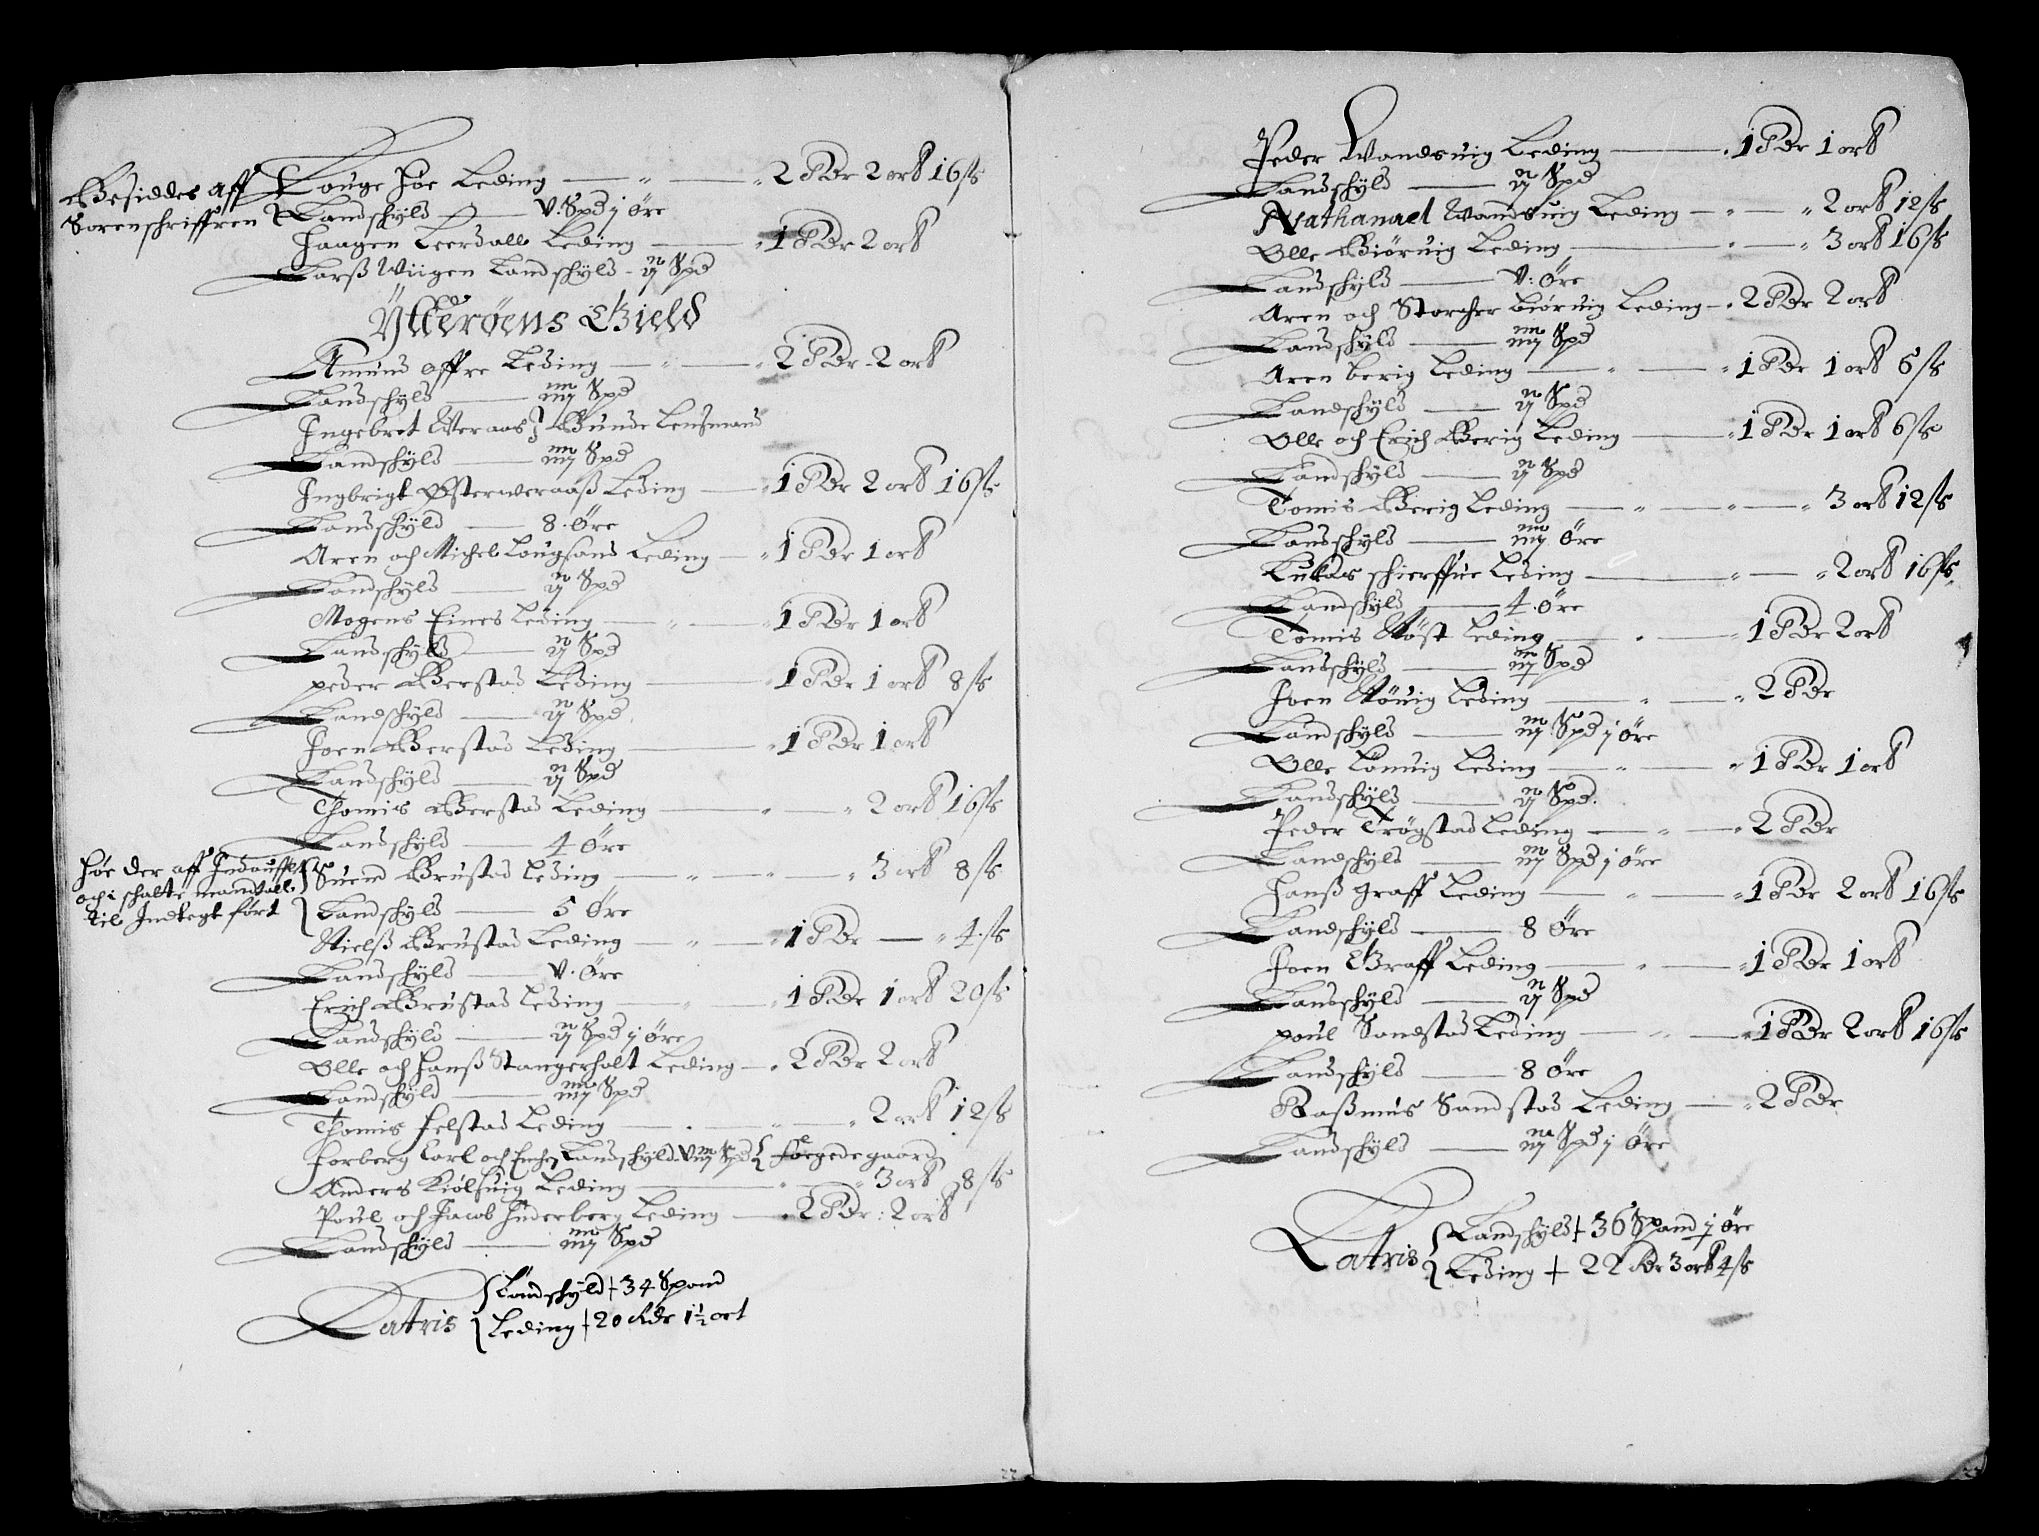 Besiddes aff
Sorenschriffren
Louge Høe Leding — 2 Rdr 2 ort 16 ß
Landschyld — V. Spd j Øre
Haagen Leerdall Leding — 1 Rdr 2 ort
Larß Wiigen Landschyld - ij Spd
Ytterøens Gield
Amund Leding — 2 Rdr - 2 ort
Landschyld — iiij Spd
Ingebret Weraas Bunde Lensmand
Landschyld — iiij Spd
Ingbrigt Østerweraaß Leding — 1 Rdr 2 ort 16 ß
Landschyld — 8. Øre
Aren och Michel Leding — 1 Rdr 1 ort
Landschyld — ij Spd
Mogens Eines Leding — 1 Rdr 1 ort
Landschyld — ij Spd
peder Berstad Leding — 1 Rdr 1 ort 8 ß
Landschyld — ij Spd
Joen Berstad Leding — 1 Rdr 1 ort
Landschyld — ij Spd
Thomis Berstad Leding — 2 ort 16 ß
Landschyld — 4 Øre
Høe der aff
och i schatte mandtalle
til Indtegt ført
Suend Brustad Leding — 3 ort 8 ß
Landschyld — 5 Øre
Nielß Brustad Leding — 1 Rdr — 4. ß
Landschyld — V. Øre
Erich Brustad Leding — 1 Rdr 1 ort 20 ß
Landschyld — ij Spd j Øre
Olle och Hanß Stangerholt Leding — 2 Rdr 2 ort
Landschyld — iiij Spd
Thomis Felstad Leding — 2 ort 12 ß
Forberg Carl och Landschyld Spd gaard
Anders Kiølsuig Leding — 3 ort 8 ß
Poul och Jacob Hinderberg Leding — 2 Rdr: 2 ort
Landschyld — iiij Spd
Latris
Landschyld + 34 Spand
Leding + 20 Rdr 1½ ort
Peder Wandsuig Leding — 1 Rdr 1 ort
Landschyld — ij Spd
Nathanael Wandsuig Leding — 2 ort 12 ß
Olle Biøruig Leding — 3 ort 16 ß
Landschyld — V. Øre
Aren och Storcher Biøruig Leding — 2 Rdr 2 ort
Landschyld — iiij Spd
Aren berig Leding — 1 Rdr 1 ort 6 ß
Landschyld — ij Spd
Olle och Erich Berig Leding — 1 Rdr 1 ort 6 ß
Landschyld — ij Spd
Tomis Berig Leding — 3 ort 12 ß
Landschyld — iiij Øre
Lukas schierffue Leding — 2 ort 16 ß
Landschyld — 4. Øre
Tomis Røst Leding — 1 Rdr 2 ort
Landschyld — iij Spd
Joen Leding — 2 Rdr
Landschyld — iij Spd j Øre
Olle Lønuig Leding — 1 Rdr 1 ort
Landschyld — ij Spd.
Peder Trøgstad Leding — 2 Rdr
Landschyld — iij Spd j Øre
Hanß Graff Leding — 1 Rdr 2 ort 16 ß
Landschyld — 8 Øre
Joen Graff Leding — 1 Rdr 1 ort
Landschyld — ij Spd
poul Sandstad Leding — 1 Rdr 2 ort 16 ß
Landschyld — 8 Øre
Raßmus Sandstad Leding — 2 Rdr
Landschyld — iij Spd j Øre
Latris
Landschyld + 36 Spand j Øre
Leding + 22 Rdr 3 ort 4 ß